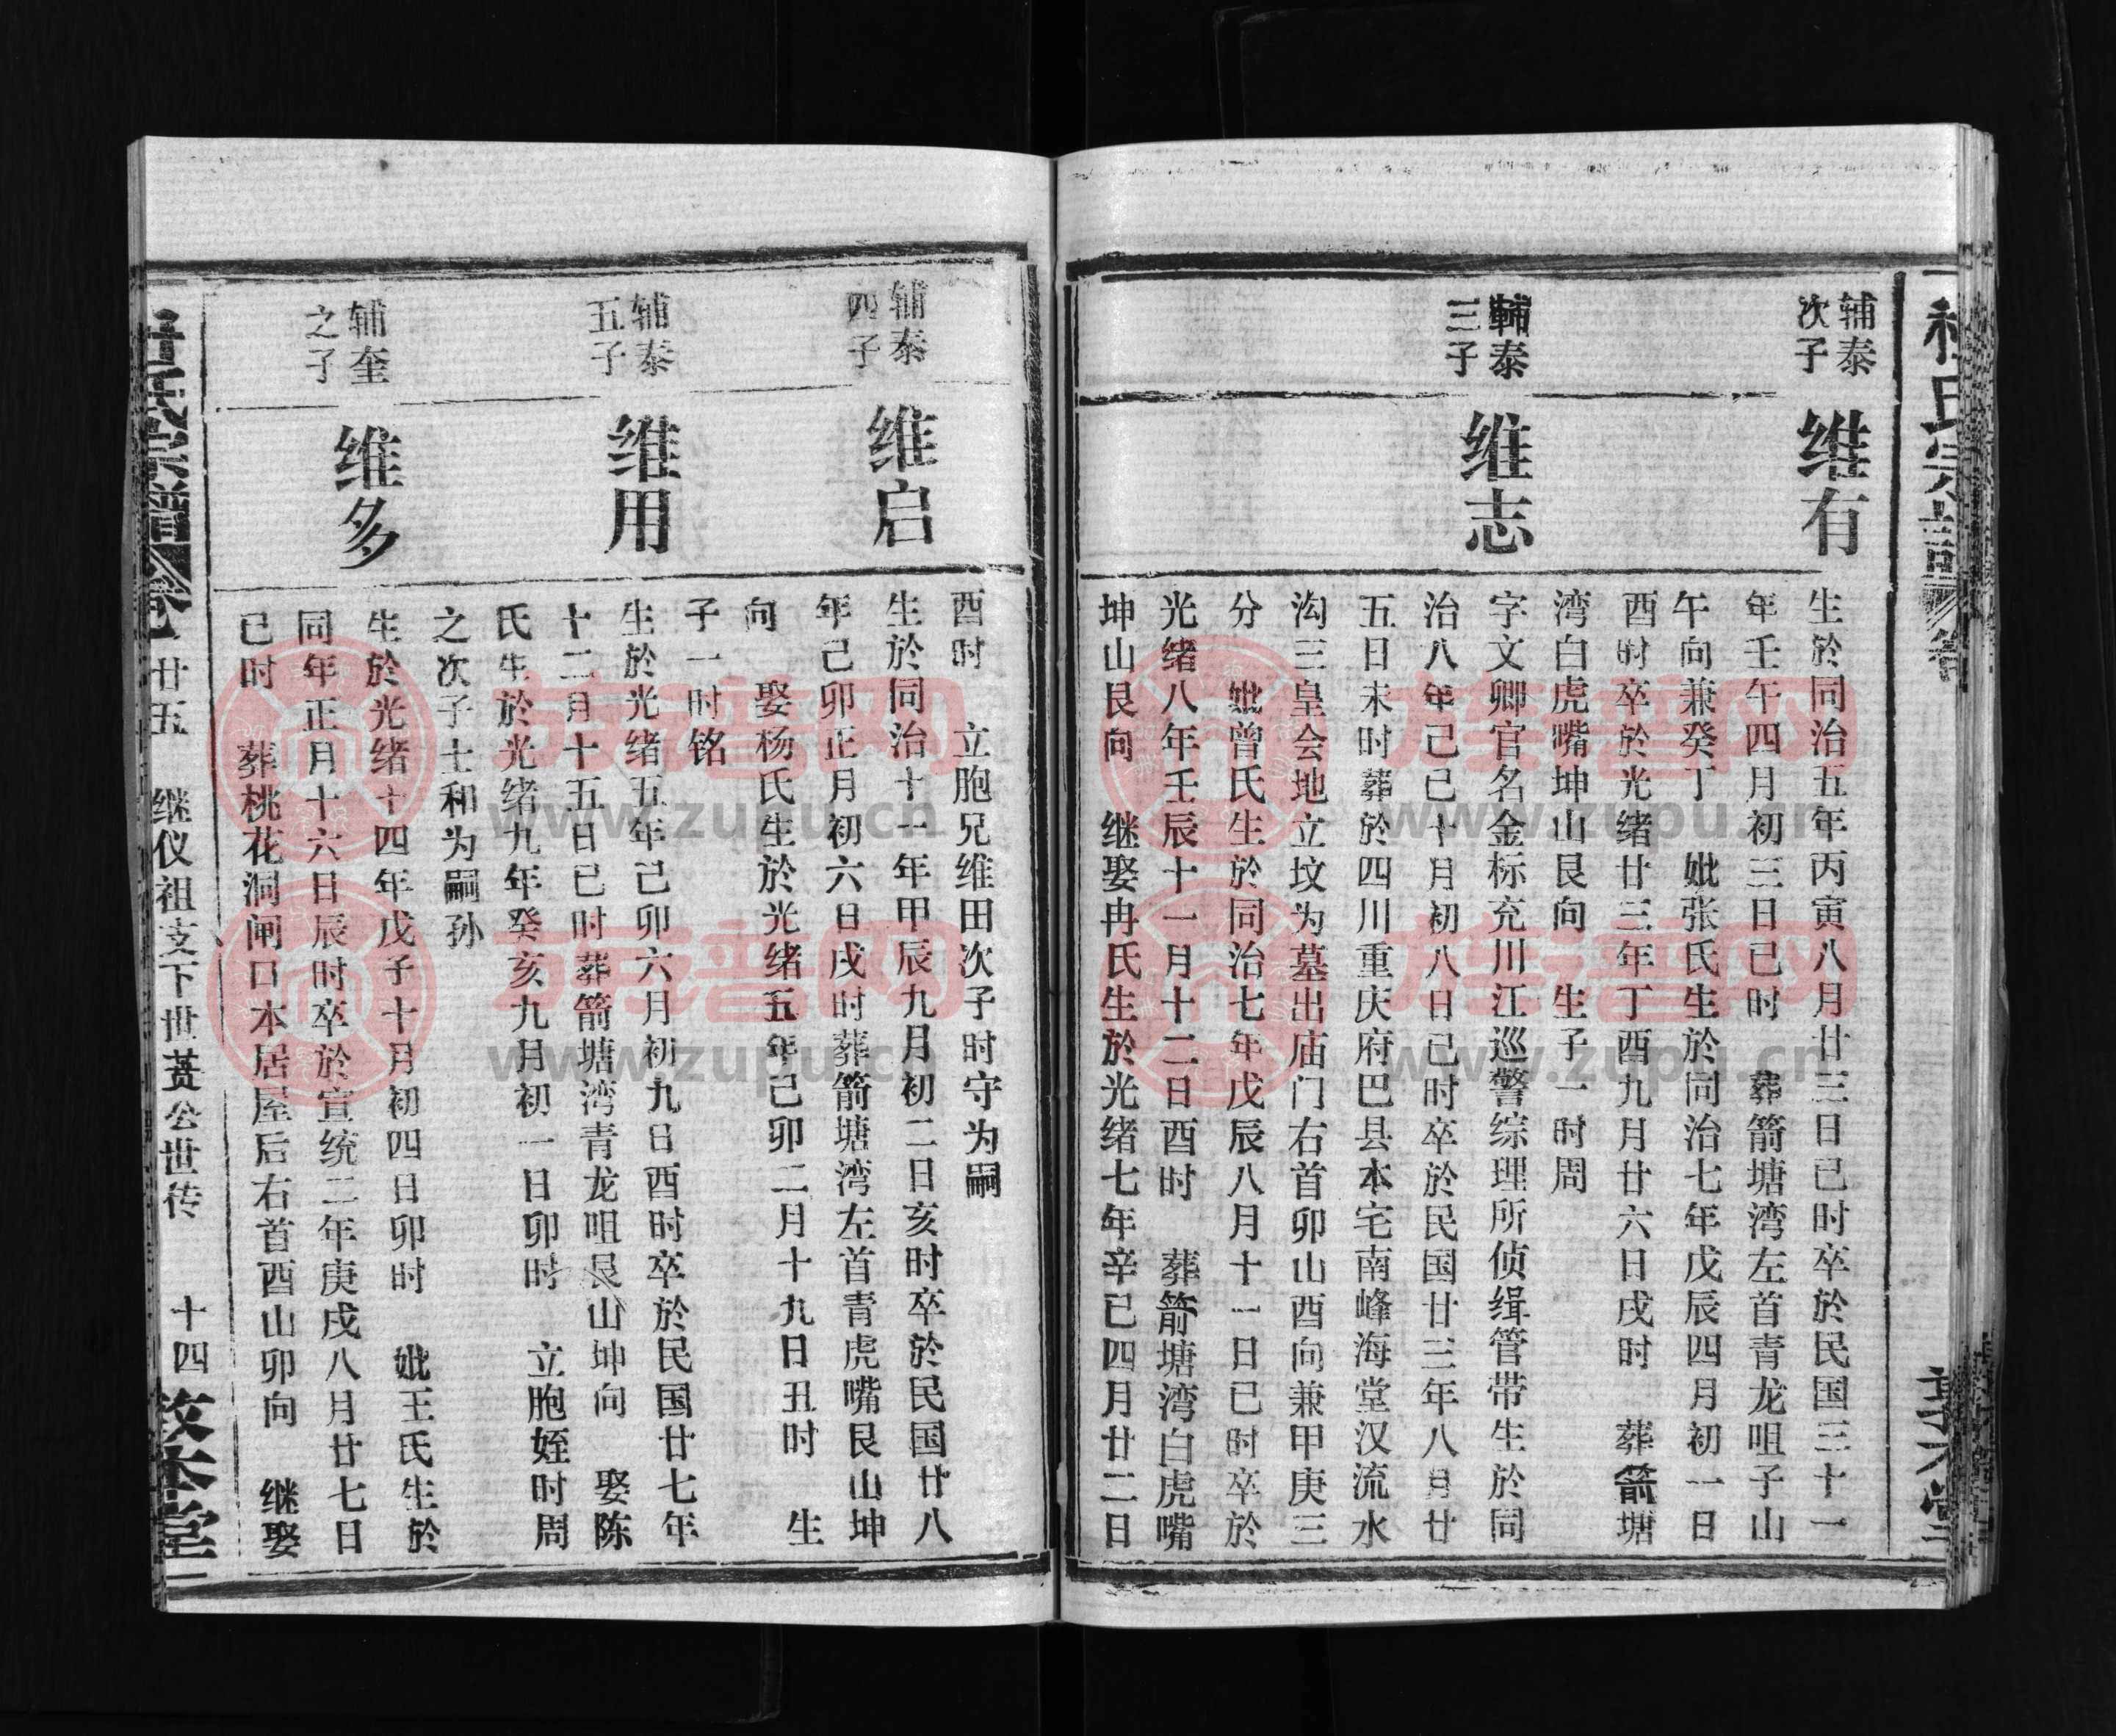 辅泰
次子
维有
生於同治五年丙寅八月廿三日巳时卒於民国三十一
年壬午四月初三日巳时 葬箭塘湾左首青龙咀子山
午向兼癸丁 妣张氏生於同治七年戊辰四月初一日
酉时卒於光绪廿三年丁酉九月廿六日戌时 葬箭塘
湾白虎嘴坤山艮向 生子一时周
輔泰
三子
维志
字文卿官名金标充川江巡警综理所侦缉管带生於同
治八年己巳十月初八日巳时卒於民国廿三年八月廿
五日未时葬於四川重庆府巴县本宅南峰海堂汉流水
沟三皇会地立坟为墓出庙门右首卯山酉向兼甲庚三
分 妣曾氏生於同治七年戊辰八月十一日巳时卒於
光绪八年壬辰十一月十二日酉时 葬箭塘湾白虎嘴
坤山艮向 继娶冉氏生於光绪七年辛巳四月廿二日
酉时 立胞兄维田次子时守为嗣
辅泰
四子
维启
生於同治十一年甲辰九月初二日亥时卒於民国廿八
年己卯正月初六日戌时葬箭塘湾左首青虎嘴艮山坤
向 娶杨氏生於光绪五年己卯二月十九日丑时 生
子一时铭
辅泰
五子
维用
生於光绪五年己卯六月初九日酉时卒於民国廿七年
十二月十五日巳时葬箭塘湾青龙咀艮山坤向 娶陈
氏生於光绪九年癸亥九月初一日卯时 立胞姪时周
之次子士和为嗣孙
辅奎
之子
维多
生於光绪十四年戊子十月初四日卯时 妣王氏生於
同年正月十六日辰时卒於宣统二年庚戌八月廿七日
巳时 葬桃花洞闸口本居屋后右首酉山卯向 继娶
杜氏宗谱 卷廿五 继仪祖支下世蒉公世传 十四 敦本堂
族谱网
www.zupu.cn
族谱网
www.zupu.cn
族谱网
www.zupu.cn
族谱网
www.zupu.cn